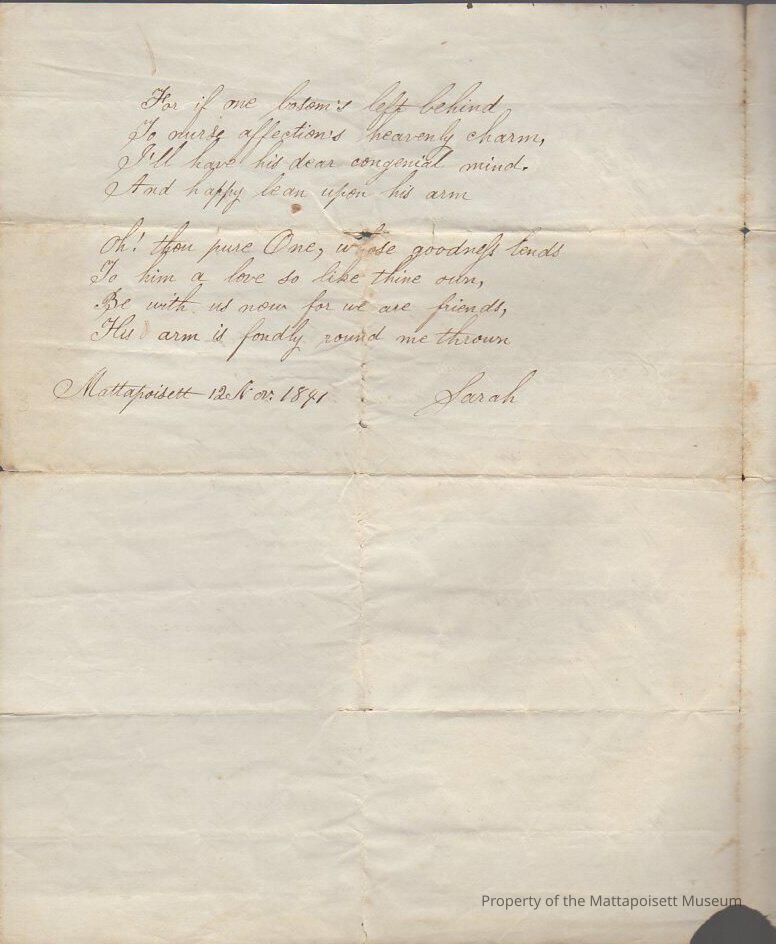 For if one bosom's left behind
To nurse affection's heavenly charm,
I'll have his dear congenial mind.
And happy lean upon his arm
Oh! thou pure One, whose goodness lends
To him a love so like thine own,
Be with us now for we are friends,
His arm is fondly round me thrown
Mattapoisett 12 Nov: 1841 Sarah
Property of the Mattapoisett Museum